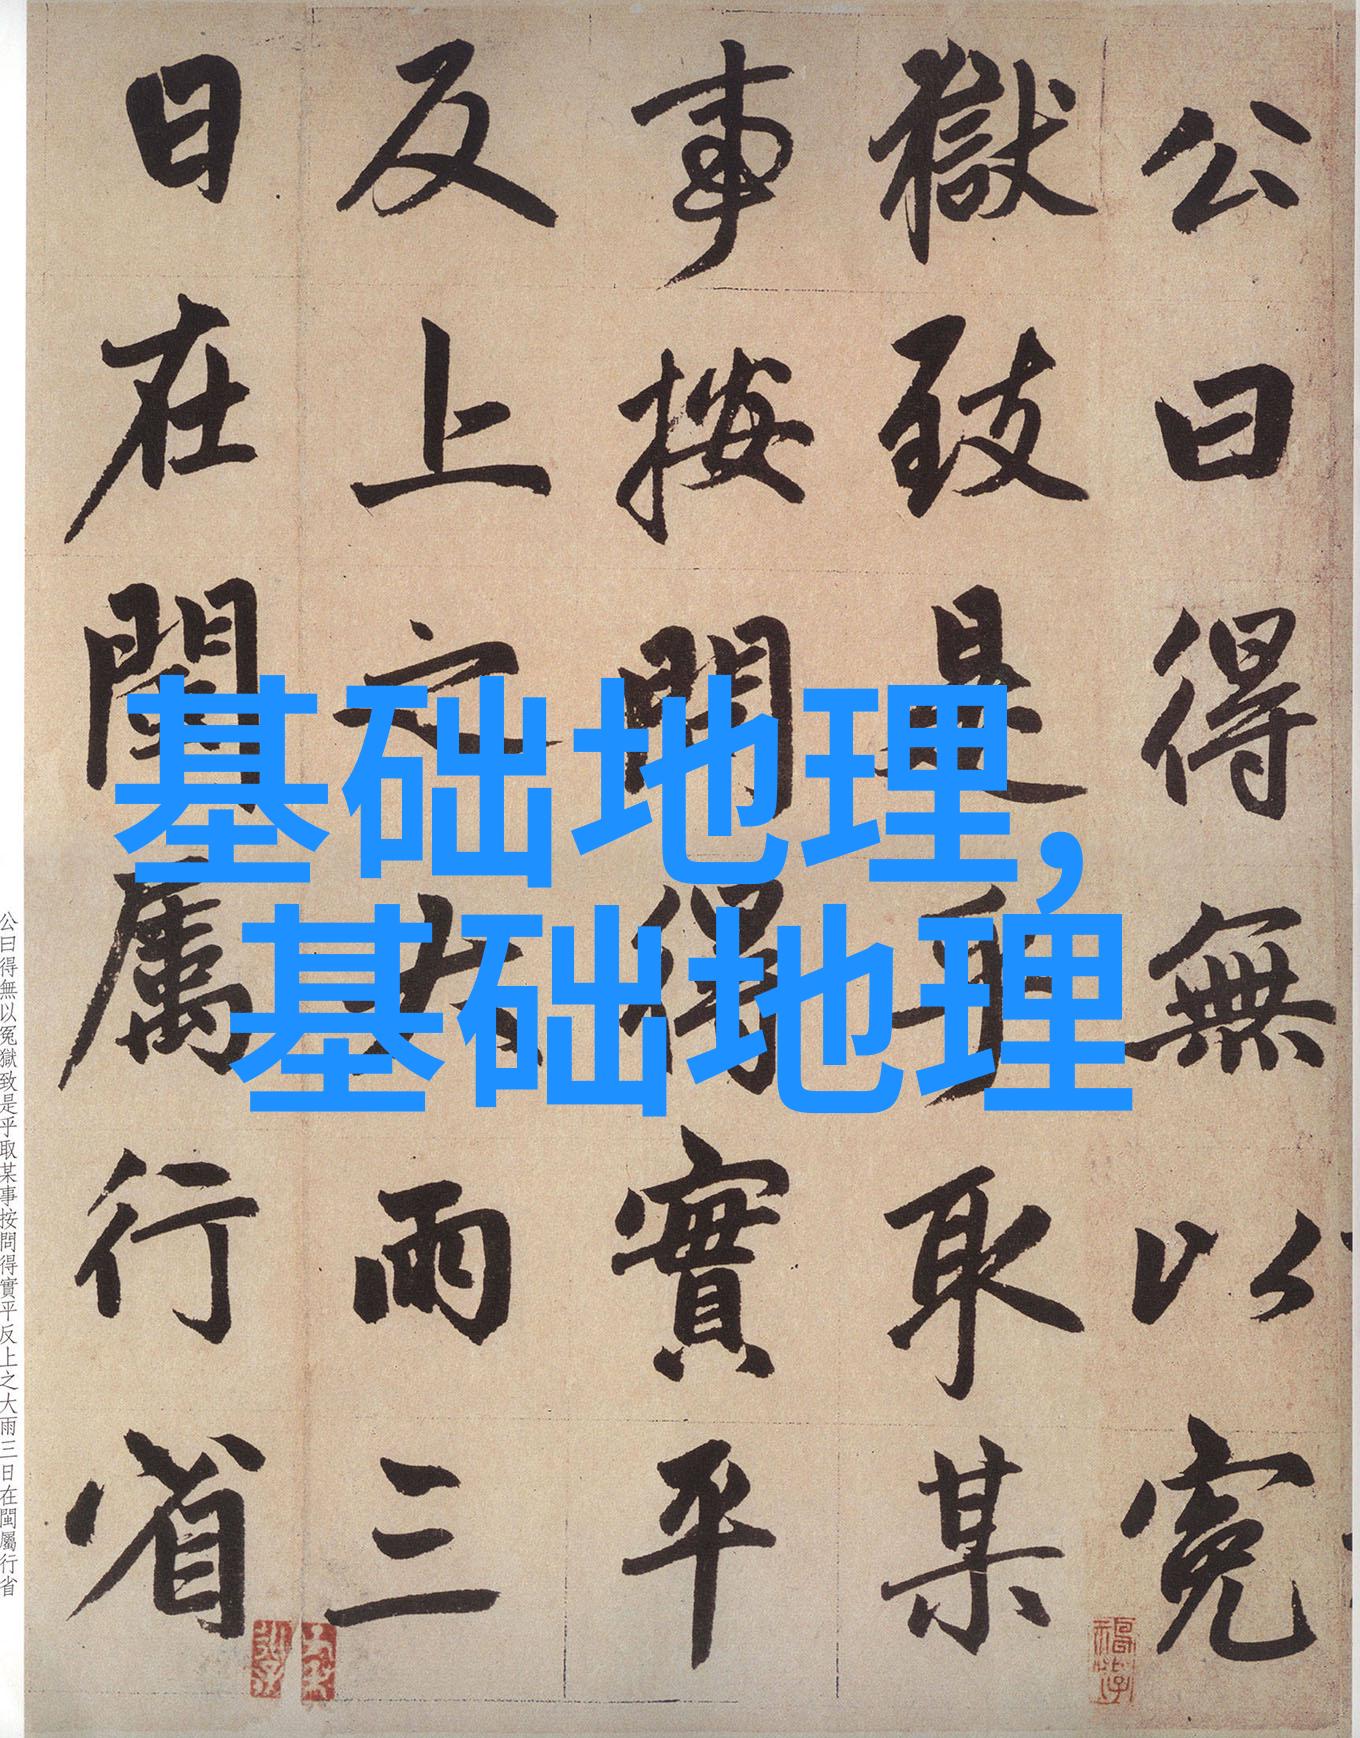 公曰得無以冤
獄致是乎取某
事按問得實平
反上之大雨三
日在閩屬行省
基础地理,
基础地理
公曰得無以冤獄致是乎取某事按問得實平反上之大雨三日在閩屬行省